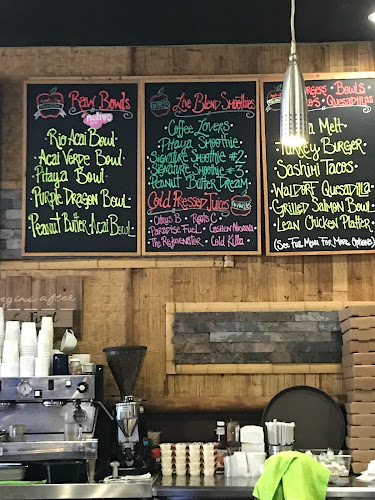 Raw Bowls
nativo
Rio Acai Bowl
Acai Verde Bowl
Pitaya Bowl
Purple Dragon Bowl
Peanut Butter Acai Bowl
Live Blend Smoothies
Coffee Lovers
Pitaya Smoothie
Signature Smoothie #2
Signature Smoothie #3
Peanut Butter Dream
Cold Pressed Juices
Citrus B • Roots C •
Paradise Fuel • Cashew Nirvana
The Rejuvenator • Cold Killa
Burgers Bowls
Quesadillas
Melt
Turkey Burger
Sashimi Tacos
Waldorf Quesadilla
Grilled Salmon Bowl
Lean Chicken Platter
(See Full Menu For More Options)
begins after